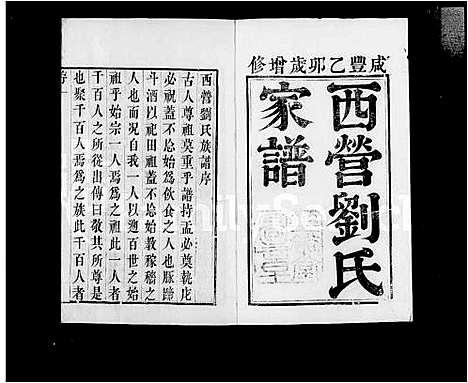 咸豐乙卯歲增修
西營劉氏
家譜
西營劉氏族譜序
古人尊祖莫重乎譜持盂必奠執庀
必祝蓋不忘始爲飲食之人也豚蹄
斗酒以祀田祖蓋不忘始教稼穡之
人也而況自我一人以遡百世之始
祖乎始宗一人焉爲之祖此一人者
千百人之所從出傳曰敬其所尊是
也聚千百人焉爲之族此千百人者